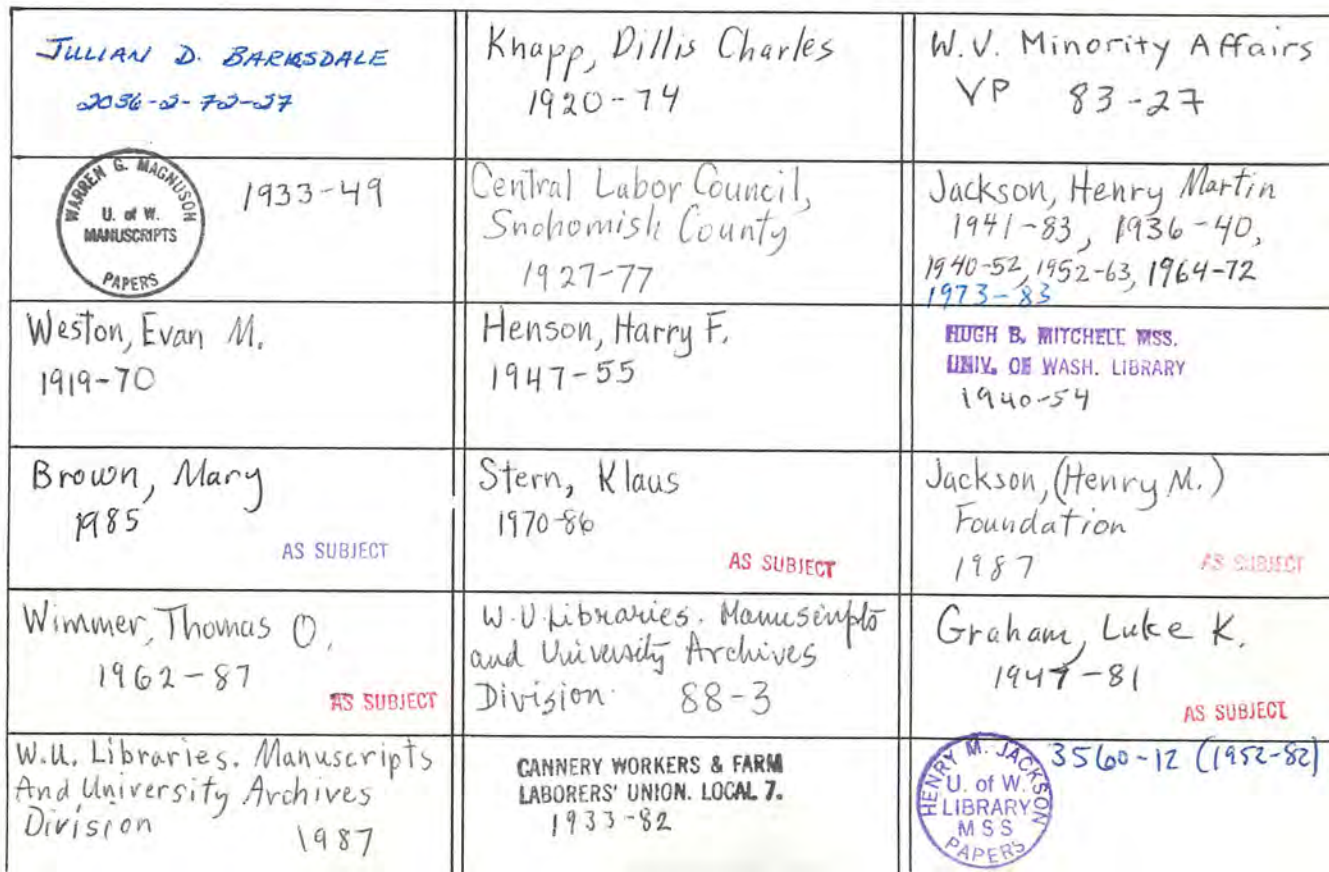 JULIAN D. BARKSDALE
2036-2-72-27
Knapp, Dillis Charles
1920-74
W.V. Minority Affairs
VP 83-27
WARREN G. MAGNUSON
U. of W.
MANUSCRIPTS
PAPERS
1933-49
Central Labor Council,
Snohomish County
1927-77
Jackson, Henry Martin
1941-83, 1936-40,
1940-52, 1952-63, 1964-72
1973-83
Weston, Evan M.
1919-70
Henson, Harry F.
1947-55
HUGH B. MITCHELL MSS.
UNIV. OF WASH. LIBRARY
1940-54
Brown, Mary
1985
AS SUBJECT
Stern, Klaus
1970-86
AS SUBJECT
Jackson, (Henry M.)
Foundation
1987
AS SUBJECT
Wimmer, Thomas O.
1962-87
AS SUBJECT
W.U. Libraries. Manuscripts
and University Archives
Division 88-3
Graham, Luke K.
1947-81
AS SUBJECT
W.U. Libraries. Manuscripts
And University Archives
Division 1987
CANNERY WORKERS & FARM
LABORERS' UNION. LOCAL 7.
1933-82
HENRY M. JACKSON
U. of W.
LIBRARY
MSS
PAPERS
3560-12 (1952-82)